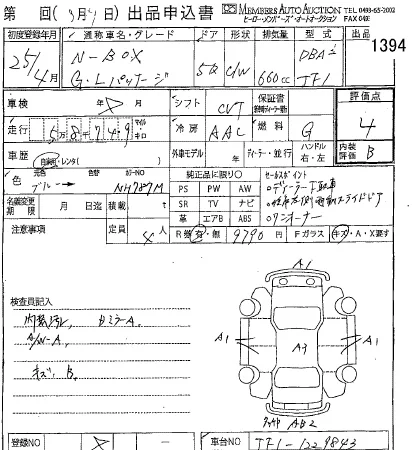 第 回(3月4日) 出品申込書 MEMBERS AUTO AUCTION TEL 0493-65-2002
ヒーロー・メンバーズ・オートオークション FAX 0493
初度登録年月 通称車名・グレード ドア 形状 排気量 型式 出品
25/4月 N-BOX 5D C/W 660cc DBA- 1394
G・Lパッケージ JF1
車検 年 月 シフト CVT 保証書 評価点
走行 5万8千749 マイル キロ 冷房 AAC 燃料 G 4
車歴 自家用・レンタ( ) 外車モデル 年 ディーラー・並行 ハンドル 右・左 内装評価 B
色 元色 ブルー 替色 カラーNO NH787M 純正品に限り○ セールスポイント
PS PW AW ・ディーラー下取車
名義変更期限 月 日迄 積載 t SR TV ナビ
革 エアB ABS ・ワンオーナー
注意事項 定員 4人 R券 有・無 9790円 Fガラス キズ・A・X要す
検査員記入
内装汚れ、 ミラーA、
A/W-A
キズ、B、
A1
A1 A3 A1
AB2
登録NO 車台NO JF1-1229843